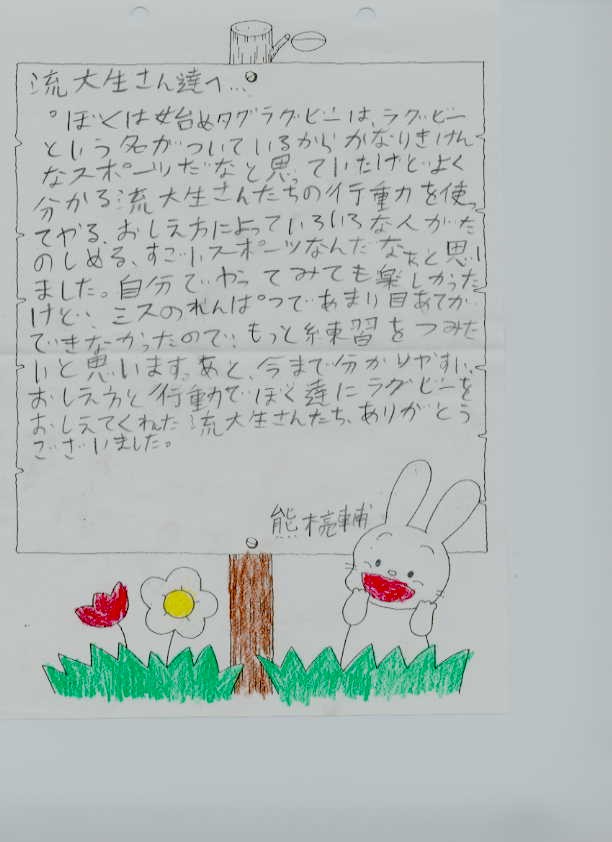 流大生さん達へ…
。ぼくは始めタグラグビーは、ラグビー
という名がついているからかなりきけん
なスポーツだなと思っていたけどよく
分かる流大生さんたちの行動を使っ
てやる、おしえ方によっていろいろな人がた
のしめる、すごいスポーツなんだなぁと思い
ました。自分でやってみても楽しかった
けど、ミスのれんぱつであまり目あてが
できなかったので、もっと練習をつみた
いと思います。あと、今まで分かりやすい、
おしえ方と行動でぼく達にラグビーを
おしえてくれた流大生さんたち、ありがとう
ございました。
熊 亮輔